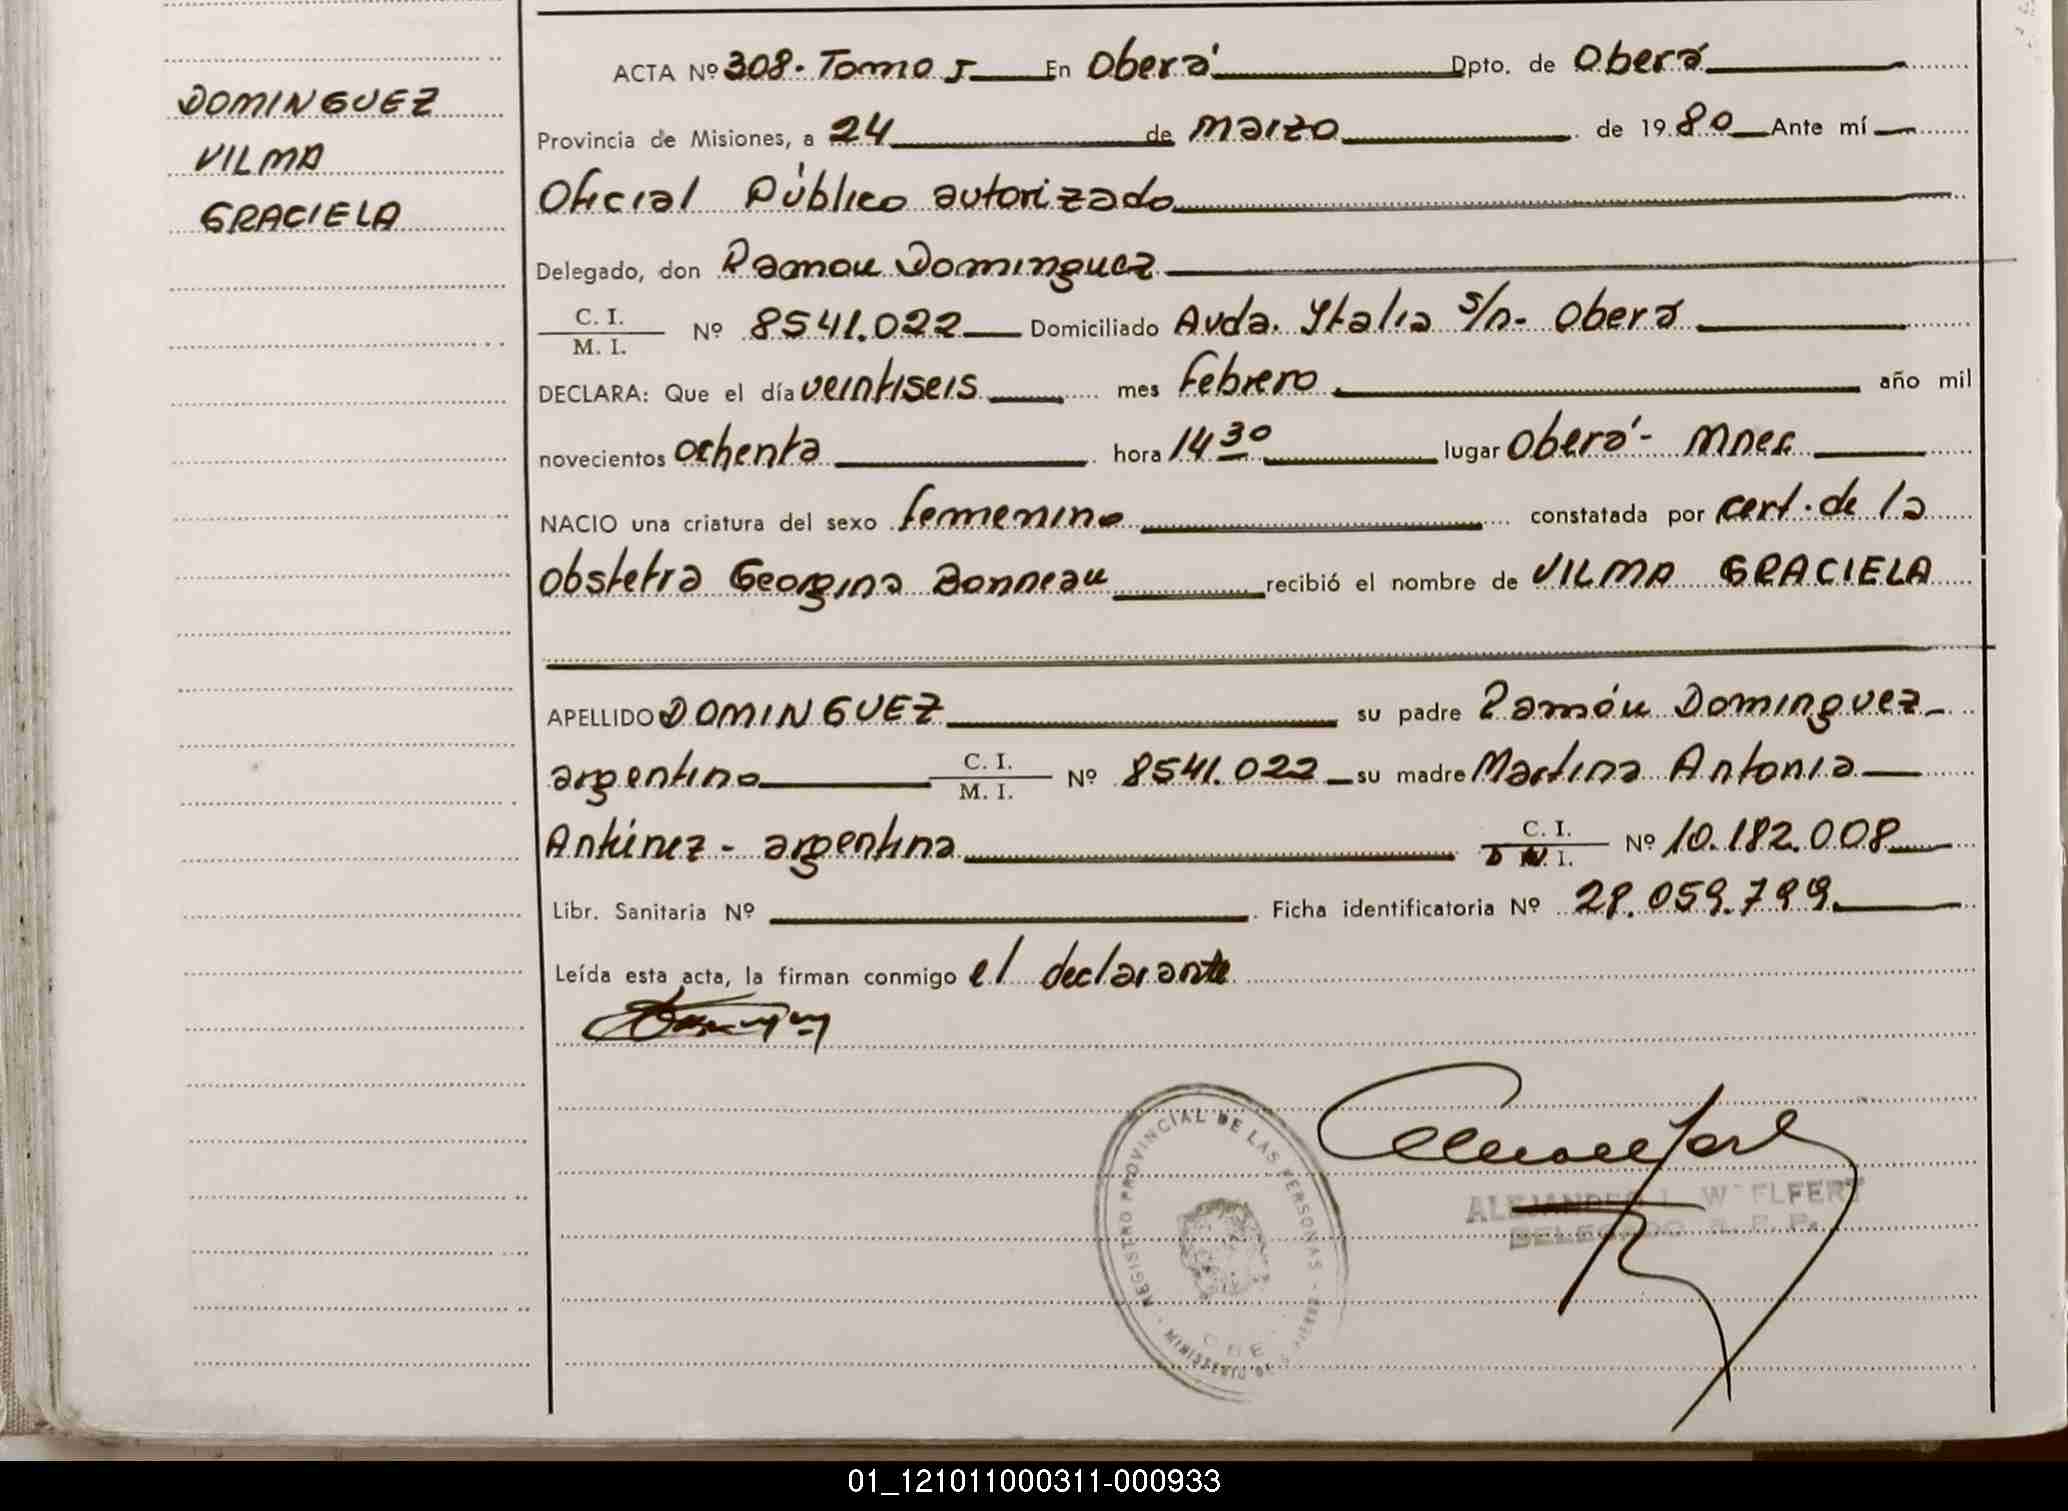 DOMINGUEZ
VILMA
GRACIELA
ACTA Nº 308. Tomo I En Oberá Dpto. de Oberá
Provincia de Misiones, a 24 de marzo de 1980 Ante mí
Oficial Público autorizado
Delegado, don Ramon Dominguez
C. I.
M. I. Nº 8541.022 Domiciliado Avda. Italia s/n- Oberá
DECLARA: Que el día veintiseis mes febrero año mil
novecientos ochenta hora 14 30 lugar Oberá- Mnes.
NACIO una criatura del sexo femenino constatada por cert. de la
obstetra Georgina Bonneau recibió el nombre de VILMA GRACIELA
APELLIDO DOMINGUEZ su padre Ramón Dominguez
argentino C. I.
M. I. Nº 8541.022 su madre Martina Antonia
Antúnez - argentina C. I.
D N. I. Nº 10.182.008
Libr. Sanitaria Nº Ficha identificatoria Nº 28.059.799
Leída esta acta, la firman conmigo el declarante
REGISTRO PROVINCIAL DE LAS PERSONAS
ALEJANDRO
DELEGADO R. P. P.
01_121011000311-000933